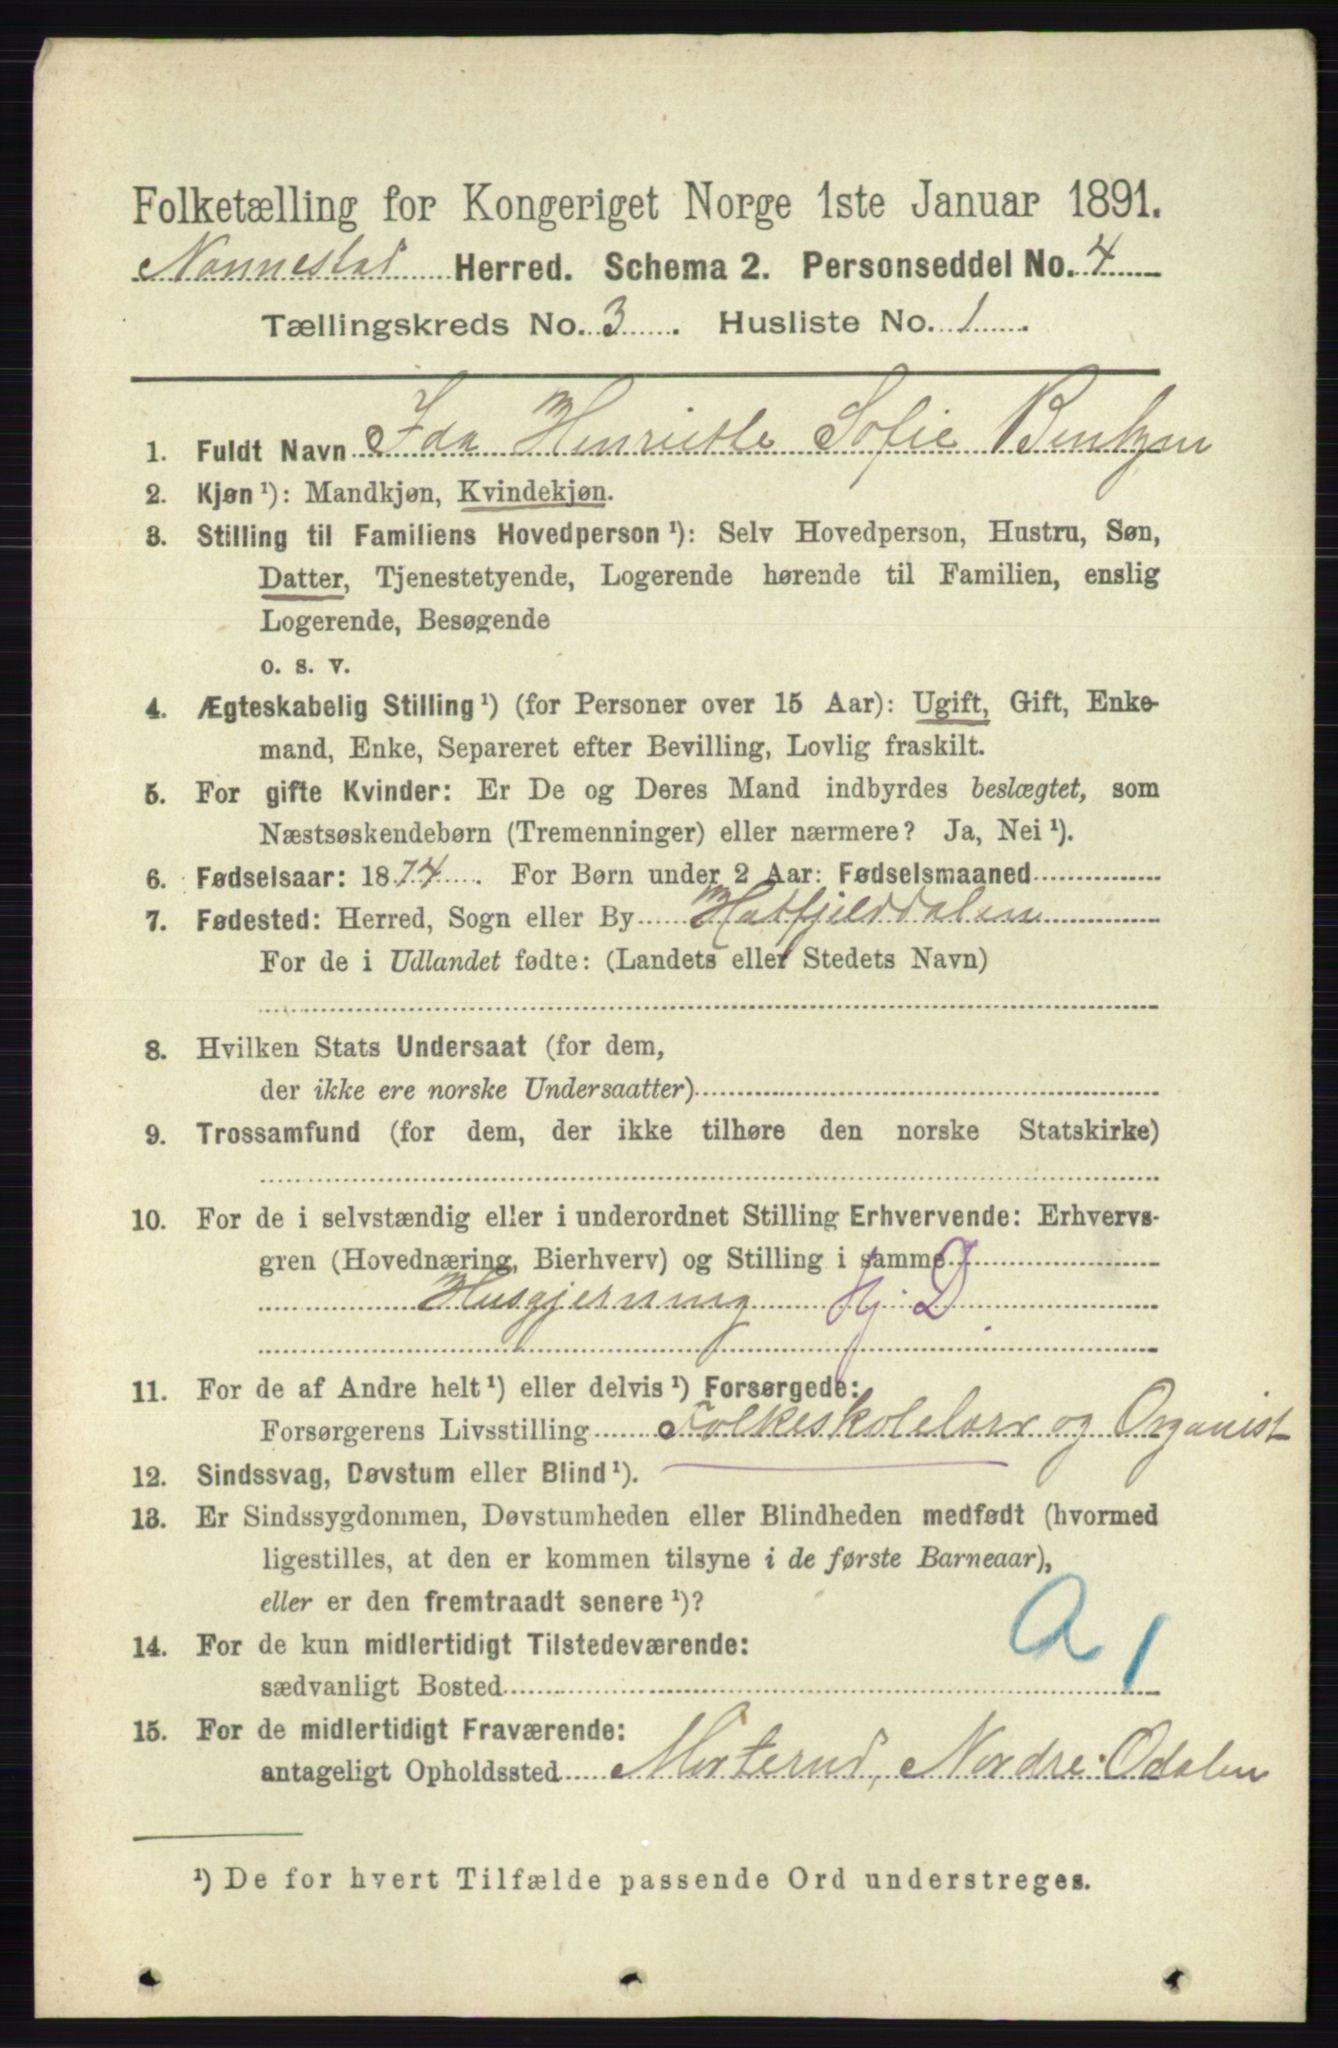 Folketælling for Kongeriget Norge 1ste Januar 1891.
Nannestad Herred. Schema 2. Personseddel No. 4
Tællingskreds No. 3. Husliste No. 1.
1. Fuldt Navn Ida Henriette Sofie Bentzen
2. Kjøn ¹): Mandkjøn, Kvindekjøn.
3. Stilling til Familiens Hovedperson ¹): Selv Hovedperson, Hustru, Søn,
Datter, Tjenestetyende, Logerende hørende til Familien, enslig
Logerende, Besøgende
o. s. v.
4. Ægteskabelig Stilling ¹) (for Personer over 15 Aar): Ugift, Gift, Enke-
mand, Enke, Separeret efter Bevilling, Lovlig fraskilt.
5. For gifte Kvinder: Er De og Deres Mand indbyrdes beslægtet, som
Næstsøskendebørn (Tremenninger) eller nærmere? Ja, Nei ¹).
6. Fødselsaar: 1874. For Børn under 2 Aar: Fødselsmaaned
7. Fødested: Herred, Sogn eller By Hatfjelddalen
For de i Udlandet fødte: (Landets eller Stedets Navn)
8. Hvilken Stats Undersaat (for dem,
der ikke ere norske Undersaatter)
9. Trossamfund (for dem, der ikke tilhøre den norske Statskirke)
10. For de i selvstændig eller i underordnet Stilling Erhvervende: Erhvervs-
gren (Hovednæring, Bierhverv) og Stilling i samme
Husgjerning Hj. D.
11. For de af Andre helt ¹) eller delvis ¹) Forsørgede:
Forsørgerens Livsstilling Folkeskolelærer og Organist
12. Sindssvag, Døvstum eller Blind ¹).
13. Er Sindssygdommen, Døvstumheden eller Blindheden medfødt (hvormed
ligestilles, at den er kommen tilsyne i de første Barneaar),
eller er den fremtraadt senere ¹)?
a 1
14. For de kun midlertidigt Tilstedeværende:
sædvanligt Bosted
15. For de midlertidigt Fraværende:
antageligt Opholdssted Morterud, Nordre Odalen
¹) De for hvert Tilfælde passende Ord understreges.